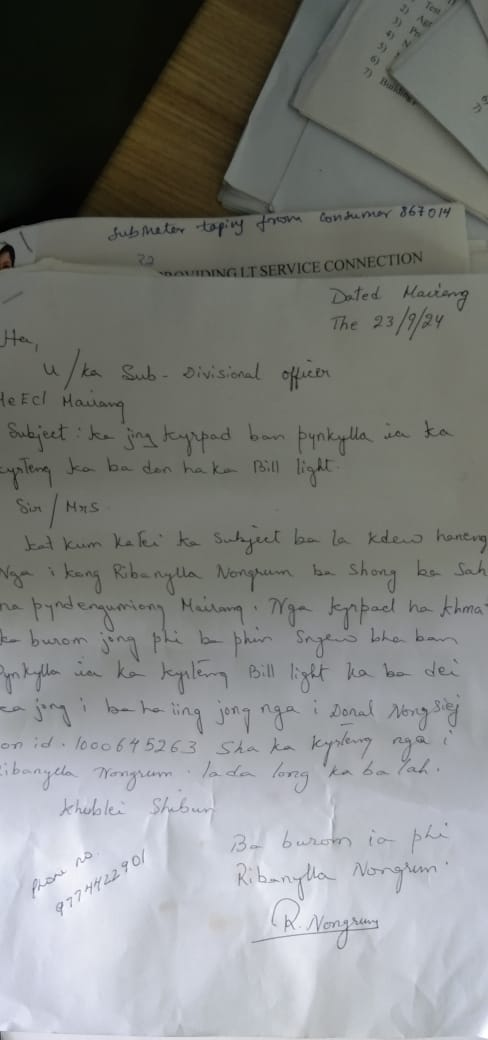 2) Test
3) Agr
4) Po
5) N
6)
7) Building
Submeter taping from Consumer 867014
22
ROVIDING LT SERVICE CONNECTION
Dated Maireng
The 23/9/24
Ha,
U/ka Sub-Divisional officer
MeEcl Mairang
Subject: ka jing kyrpad ban pynkylla ia ka
kyrteng ka ba don ha ka Bill light.
Sir/Mrs
kat kum katei ka Subject ba la kdew haneng
Nga i kong Ribanylla Nongrum ba Shong ba Sah
ha pyndengumiong Mairang. Nga kyrpad ha khmat
ka burom jong phi ba phin Sngew bha ban
Pynkylla ia ka kyrteng Bill light ka ba dei
ka jong i ba ha iing jong nga i Donal Nongsiej
Con id. 1000645263 Sha ka kyrteng nga i
Ribanylla Nongrum. lada long ka ba lah.
khublei Shibun
Ba burom ia phi
Ribanylla Nongrum.
R. Nongrum
Phone no.
9774422901